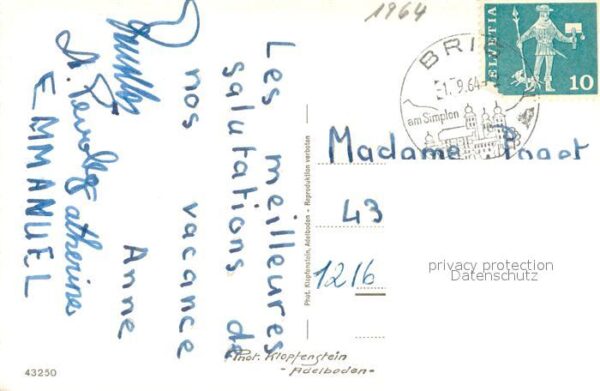 1964
HELVETIA
10
BRIG
1.9.64
am Simplon
Les meilleures
salutations de
nos vacance
Anne
EMMANUEL
Madame
43
1216
privacy protection
Datenschutz
Phot. Klopfenstein, Adelboden - Reproduktion verboten
Phot. Klopfenstein
- Adelboden -
43250